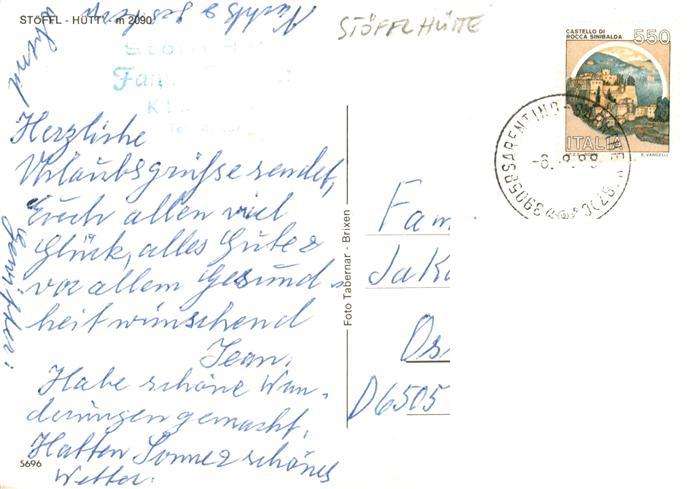 STÖFFL - HÜTTE m 2090
STÖFFLHÜTTE
Herzliche
Urlaubsgrüsse sendet,
Euch allen viel
Glück, alles Gute &
vor allem Gesund-
heit wünschend
Jean.
Habe schöne Wan-
derungen gemacht,
Hatten Sonne & schönes
Wetter.
5696
Foto Tabernar - Brixen
CASTELLO DI
ROCCA SINIBALDA
550
ITALIA
Fam
Jak
Os
D6505